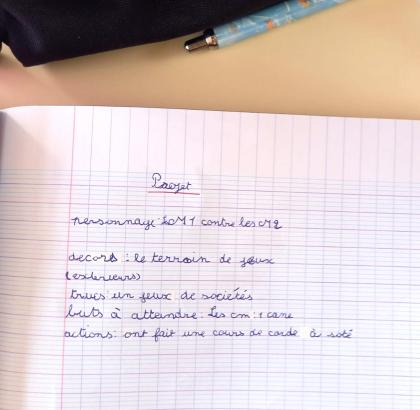 Projet
personnage: LCM1 contre les CM2
decors : le terrain de jeux
(exterieurs)
trucs: un jeux de sociétés
buts à atteindre: Les cm: 1 cane
actions: ont fait une cours de corde à soté